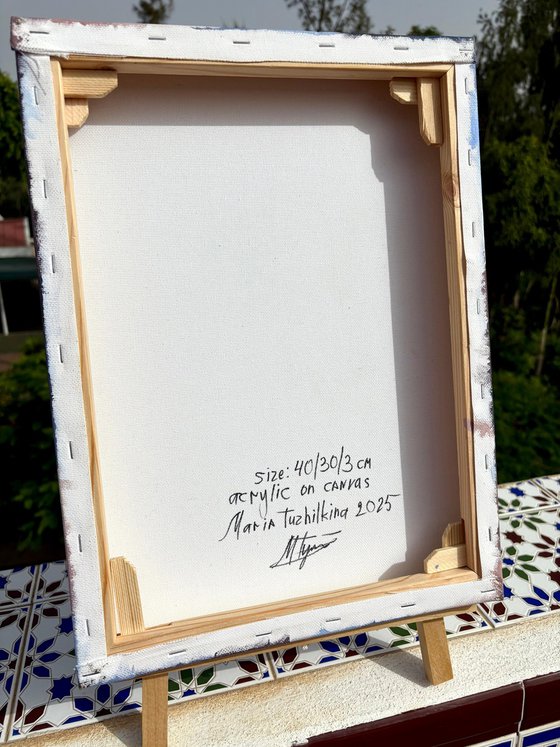 size: 40/30/3 cm
acrylic on canvas
Maria Tuzhilkina 2025